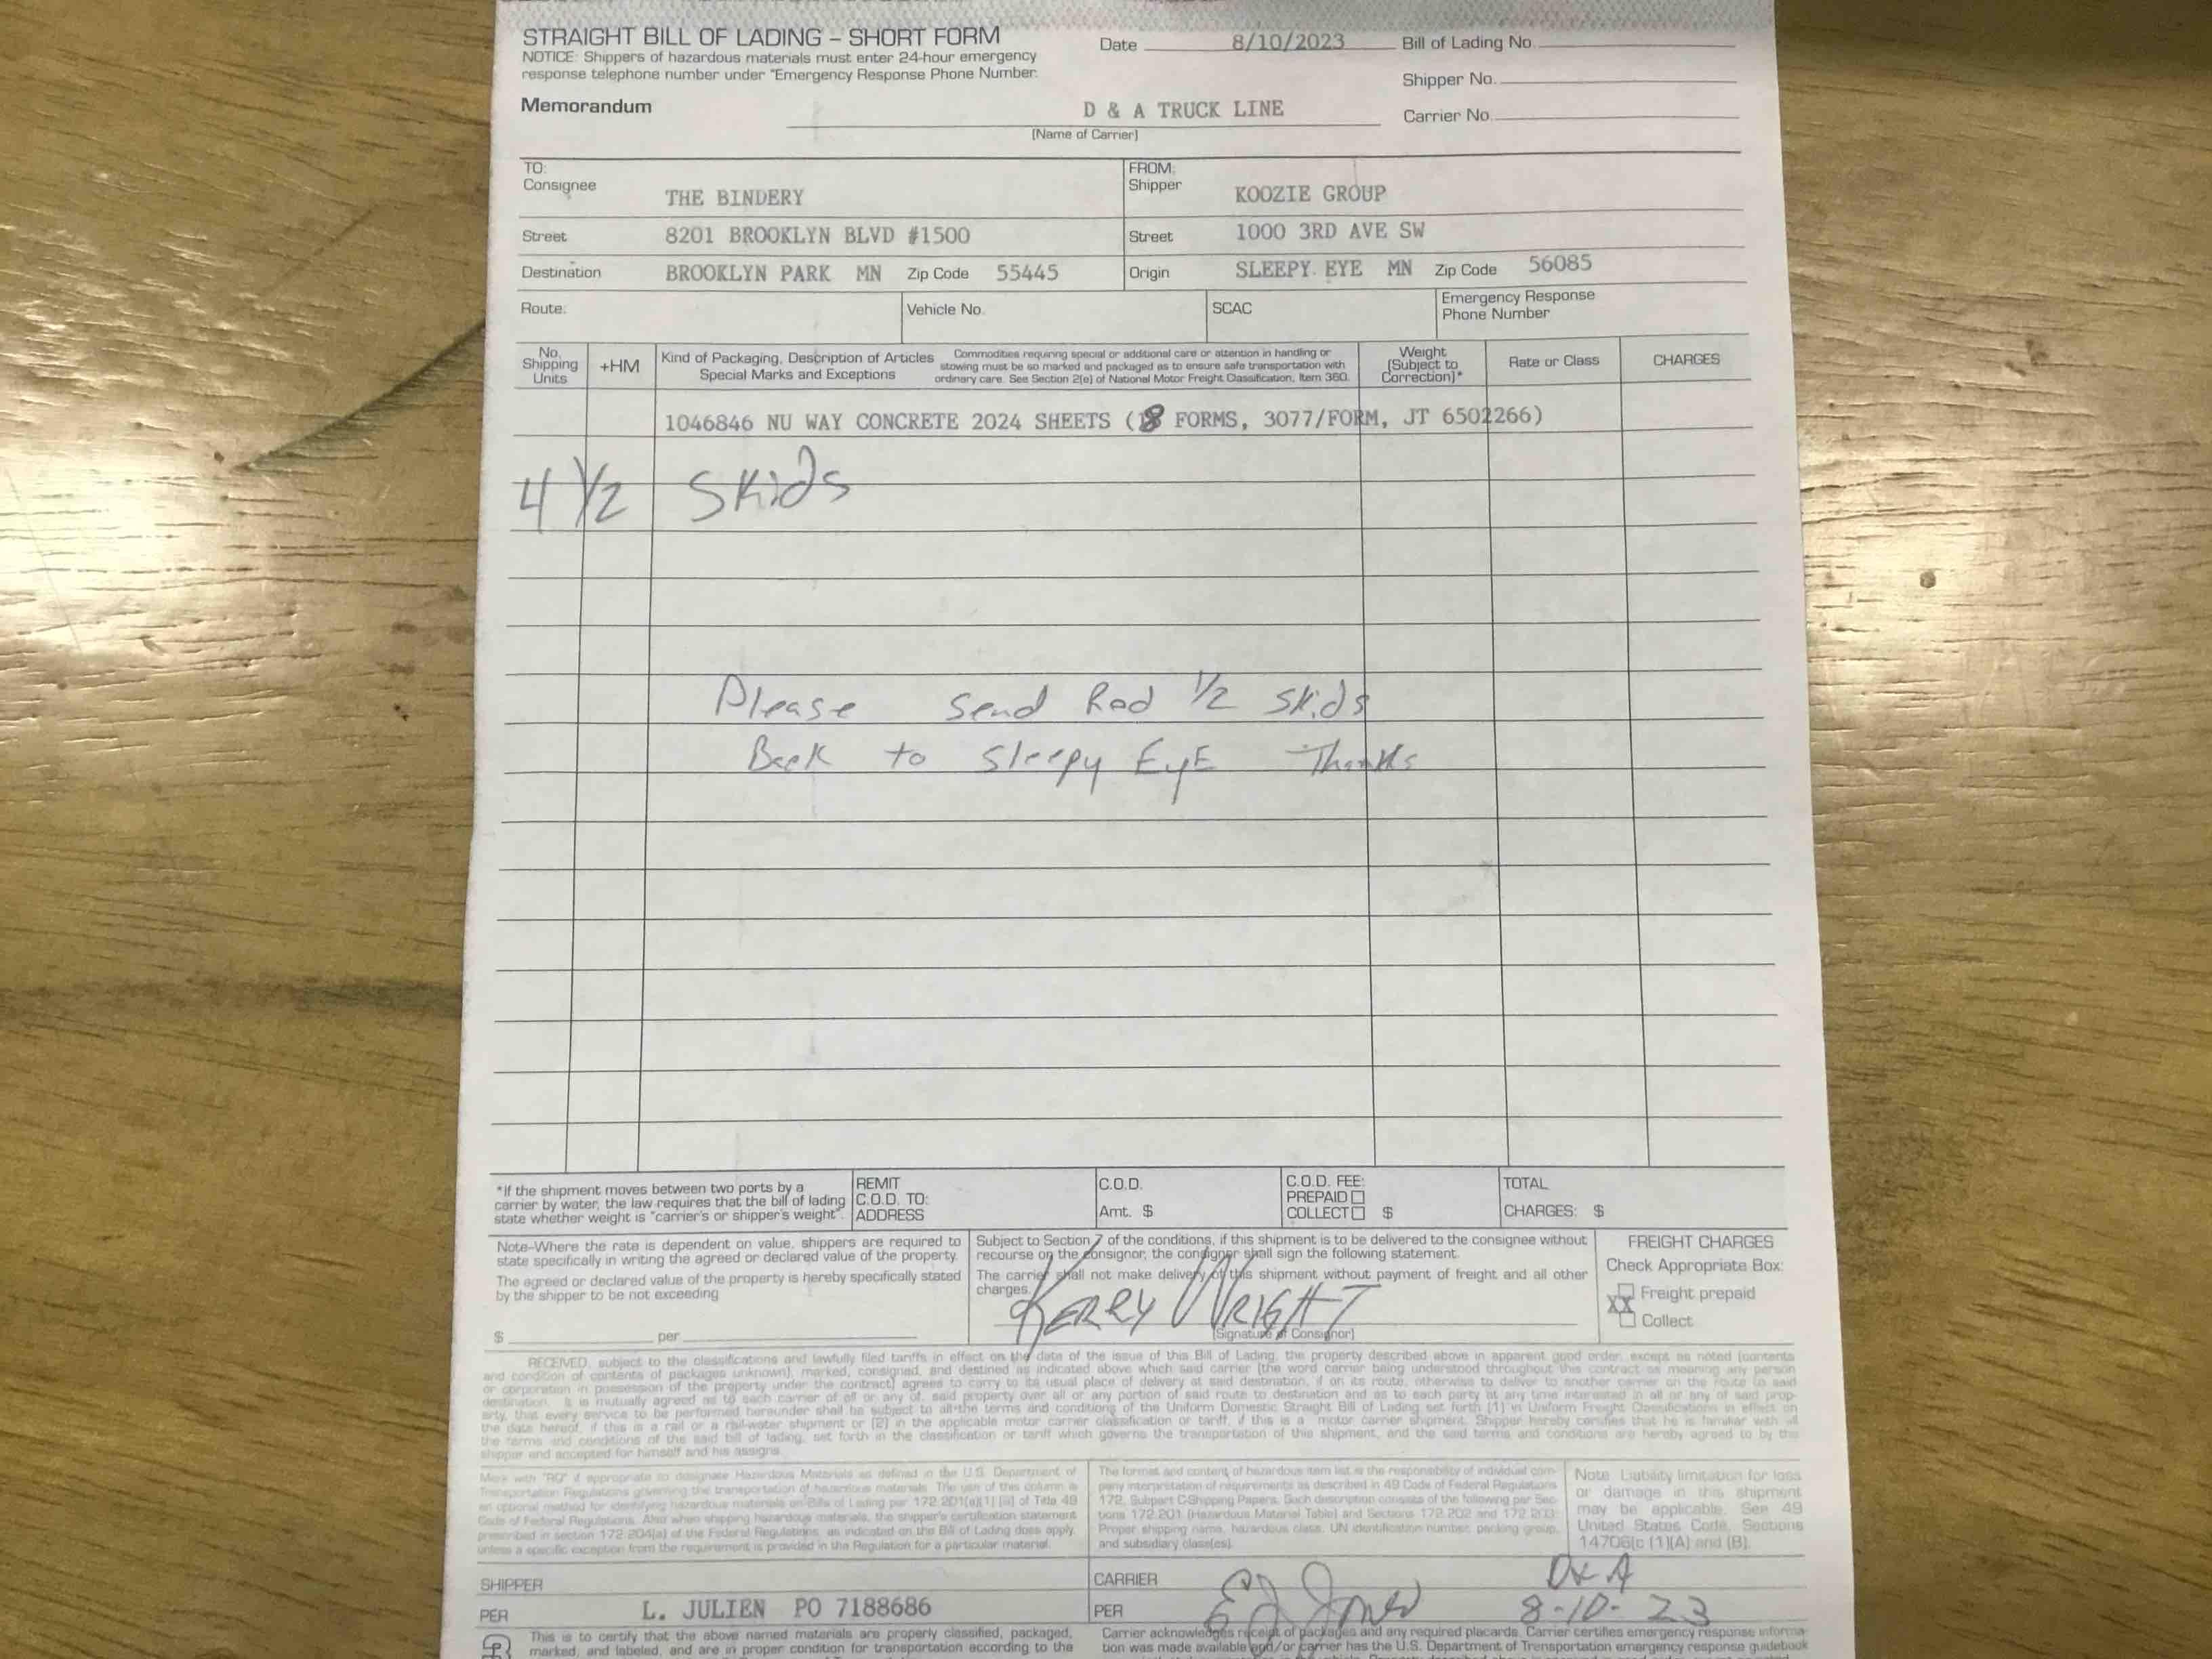 STRAIGHT BILL OF LADING – SHORT FORM
NOTICE: Shippers of hazardous materials must enter 24-hour emergency
response telephone number under "Emergency Response Phone Number.
Date 8/10/2023 Bill of Lading No.
Shipper No.
Memorandum
D & A TRUCK LINE
Carrier No.
(Name of Carrier)
TO:
Consignee THE BINDERY
FROM:
Shipper KOOZIE GROUP
Street 8201 BROOKLYN BLVD #1500
Street 1000 3RD AVE SW
Destination BROOKLYN PARK MN Zip Code 55445
Origin SLEEPY EYE MN Zip Code 56085
Route:
Vehicle No.
SCAC
Emergency Response
Phone Number
No.
Shipping
Units
+HM
Kind of Packaging, Description of Articles
Special Marks and Exceptions
Commodities requiring special or additional care or attention in handling or
stowing must be so marked and packaged as to ensure safe transportation with
ordinary care. See Section 2(e) of National Motor Freight Classification, Item 360.
Weight
(Subject to
Correction)*
Rate or Class
CHARGES
1046846 NU WAY CONCRETE 2024 SHEETS (18 FORMS, 3077/FORM, JT 6502266)
4 1/2 Skids
Please send Red 1/2 skids
Back to Sleepy EyE Thanks
*If the shipment moves between two ports by a
carrier by water, the law requires that the bill of lading
state whether weight is "carrier's or shipper's weight".
REMIT
C.O.D. TO:
ADDRESS
C.O.D.
Amt. $
C.O.D. FEE:
PREPAID
COLLECT $
TOTAL
CHARGES: $
Note–Where the rate is dependent on value, shippers are required to
state specifically in writing the agreed or declared value of the property.
The agreed or declared value of the property is hereby specifically stated
by the shipper to be not exceeding
$ per
Subject to Section 7 of the conditions, if this shipment is to be delivered to the consignee without
recourse on the consignor, the consignor shall sign the following statement.
The carrier shall not make delivery of this shipment without payment of freight and all other
charges.
KERRY WRIGHT
(Signature of Consignor)
FREIGHT CHARGES
Check Appropriate Box:
Freight prepaid
XX
Collect
RECEIVED, subject to the classifications and lawfully filed tariffs in effect on the date of the issue of this Bill of Lading, the property described above in apparent good order, except as noted (contents
and condition of contents of packages unknown), marked, consigned, and destined as indicated above which said carrier (the word carrier being understood throughout this contract as meaning any person
or corporation in possession of the property under the contract) agrees to carry to its usual place of delivery at said destination, if on its route, otherwise to deliver to another carrier on the route to said
destination. It is mutually agreed as to each carrier of all or any of, said property over all or any portion of said route to destination and as to each party at any time interested in all or any of said prop-
erty, that every service to be performed hereunder shall be subject to all the terms and conditions of the Uniform Domestic Straight Bill of Lading set forth (1) in Uniform Freight Classifications in effect on
the date hereof, if this is a rail or a rail-water shipment or (2) in the applicable motor carrier classification or tariff, if this is a motor carrier shipment. Shipper hereby certifies that he is familiar with all
the terms and conditions of the said bill of lading, set forth in the classification or tariff which governs the transportation of this shipment, and the said terms and conditions are hereby agreed to by the
shipper and accepted for himself and his assigns.
Mark with "RQ" if appropriate to designate Hazardous Materials as defined in the U.S. Department of
Transportation Regulations governing the transportation of hazardous materials. The use of this column is
an optional method for identifying hazardous materials on Bills of Lading per 172.201(a)(1) (iii) of Title 49
Code of Federal Regulations. Also when shipping hazardous materials, the shipper's certification statement
prescribed in section 172.204(a) of the Federal Regulations, as indicated on the Bill of Lading does apply,
unless a specific exception from the requirement is provided in the Regulation for a particular material.
The format and content of hazardous item list is the responsibility of individual com-
pany interpretation of requirements as described in 49 Code of Federal Regulations
172, Subpart C-Shipping Papers. Such description consists of the following per Sec-
tions 172.201 (Hazardous Material Table) and Sections 172.202 and 172.203:
Proper shipping name, hazardous class, UN identification number, packing group,
and subsidiary class(es).
Note. Liability limitation for loss
or damage in this shipment
may be applicable. See 49
United States Code, Sections
14706(c)(1)(A) and (B).
SHIPPER
CARRIER D & A
PER L. JULIEN PO 7188686
PER Ed Jones 8-10-23
This is to certify that the above named materials are properly classified, packaged,
marked, and labeled, and are in proper condition for transportation according to the
Carrier acknowledges receipt of packages and any required placards. Carrier certifies emergency response informa-
tion was made available and/or carrier has the U.S. Department of Transportation emergency response guidebook